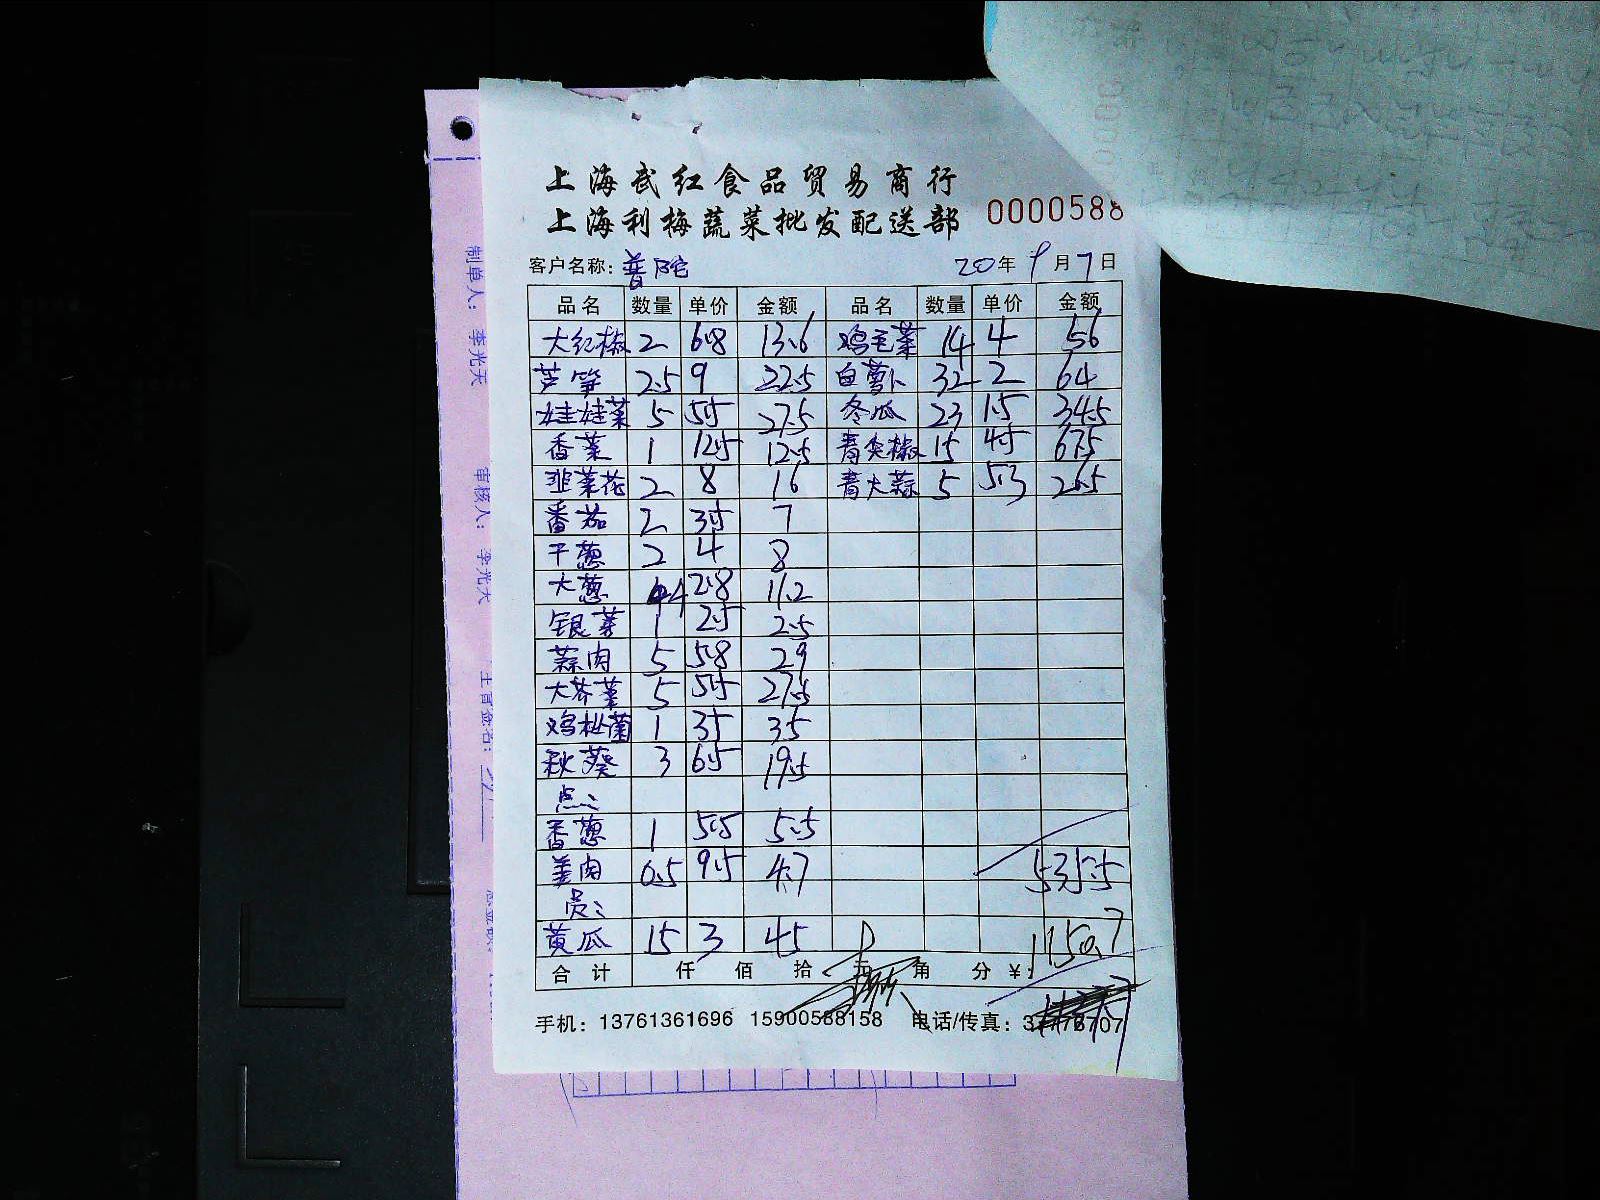 上海武红食品贸易商行
上海利梅蔬菜批发配送部 0000588
客户名称: 普陀 20年9月7日
品名 数量 单价 金额 品名 数量 单价 金额
大红椒 2 6.8 13.6 鸡毛菜 14 4 56
芦笋 2.5 9 22.5 白萝卜 32 2 64
娃娃菜 5 5.5 27.5 冬瓜 23 1.5 34.5
香菜 1 12.5 12.5 青尖椒 15 4.5 67.5
韭菜花 2 8 16 青大蒜 5 5.3 26.5
番茄 2 3.5 7
干葱 2 4 8
大葱 4 2.8 11.2
银芽 1 2.5 2.5
蒜肉 5 5.8 29
大芥菜 5 5.5 27.5
鸡枞菌 1 35 35
秋葵 3 6.5 19.5
点:
香葱 1 5.5 5.5
姜肉 0.5 9.5 4.7 535.5
员:
黄瓜 15 3 45 1150.7
合计 仟 佰 拾 元 角 分 ¥:
手机: 13761361696 15900588158 电话/传真:
制单人: 李光天
审核人: 李光天
主管签名: